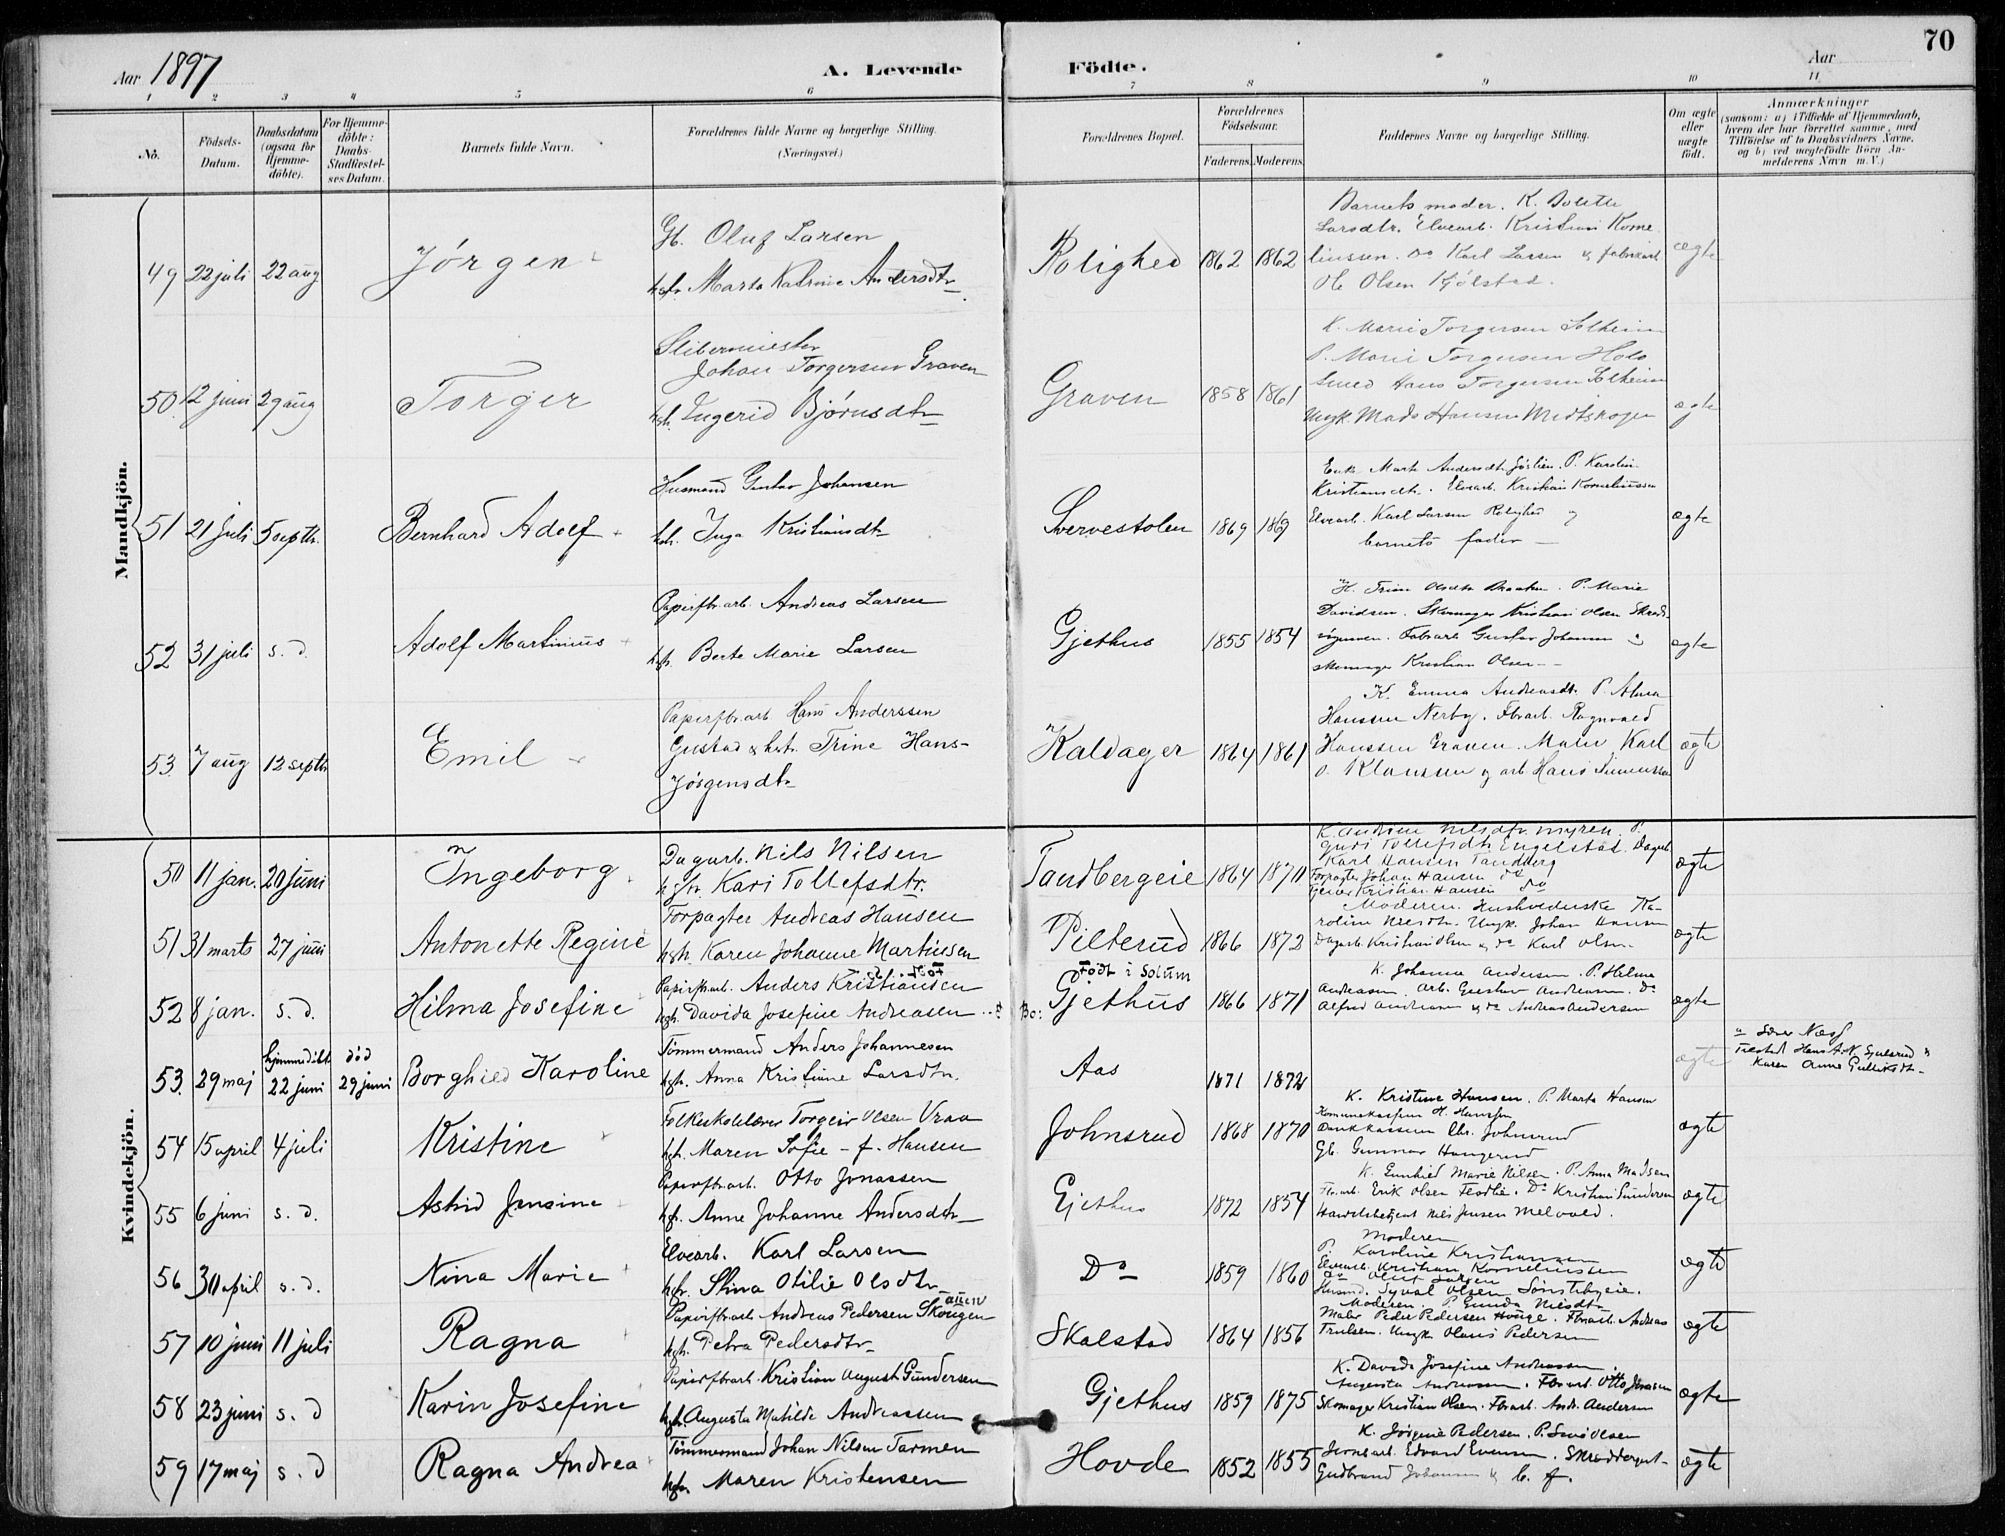 70
Aar 1897
A. Levende
Födte.
Aar
1 2 3 4 5 6 7 8 9 10 11
No.
Födsels-Datum.
Daabsdatum (ogsaa for Hjemme-döbte).
For Hjemme-döbte: Daabs-Stadfæstel-ses Datum.
Barnets fulde Navn.
Forældrenes fulde Navne og borgerlige Stilling. (Næringsvei.)
Forældrenes Bopæl.
Forældrenes Födselsaar.
Faderens. Moderens.
Faddernes Navne og borgerlige Stilling.
Om ægte eller uægte födt.
Anmærkninger
(saasom: a) i Tilfælde af Hjemmedaab, hvem der har forrettet samme, med Tilföielse af to Daabsvidners Navne, og b) ved uægtefödte Börn An-melderens Navn m. V.)
Mandkjön.
49 22 juli 22 aug Jörgen
Gb. Oluf Larsen
hfr. Marta Katrine Andersdtr
Rolighed 1862 1862
Barnets moder. K. Bolette
Larsdtr. Elvearb. Kristian Korne-
liussen. Do Karl Larsen &
Ole Olsen Kjölstad.
ægte
50 12 juni 29 aug Torger
Slibermester
Johan Torgersen Graven
hfr. Ingerid Björnsdtr
Graven 1858 1861
K. Marie Torgersen Solheim
P. Marie Torgersen Holo
Smed Hans Torgersen Solheim
Ungk. Mads Hansen Midtskogen
ægte
51 21 juli 5 septb. Bernhard Adolf
Husmand Gustav Johansen
hfr. Inga Kristiansdtr
Svervestolen 1869 1869
Enke Mart Andersdtr. P. Karolin
Kristiansdtr. Elvearb. Kristian Korneliussen
Elvearb. Karl Larsen Rolighed &
barnets fader
ægte
52 31 juli s. d. Adolf Martinius
Papirfbr.arb. Andreas Larsen
hfr. Berte Marie Larsen
Gjethus 1855 1854
K. Trine Olsdtr. P. Marie
Davidsen. Skomager Kristian Olsen
Fabrarb Gustav Johansen &
skomager Kristian Olsen
ægte
53. 7 aug 12 septb Emil
Papirfbr.arb. Hans Anderssen
Gustad & hfr. Trine Hans-
Jörgensdtr
Kaldager 1864 1861
K. Emma Andreasdtr. P. Alma
Hanssen Nerby. Fbrarb. Ragnvald
Hanssen Graven. Maler Karl
O. Klaussen & arb. Hans Simenssen
ægte
Kvindekjön.
50 11 jan. 20 juni Ingeborg
Dagarb. Nils Nilsen
hfr. Kari Tollefsdtr.
Tandbergeie 1864 1870
K. Andrine Nilsdtr. Myren. P.
Guri Tollefsdtr. Engelstad. Dagarb
Karl Hansen Tandberg
Forpagter Johan Hansen do
Kristian Hansen do
ægte
51 31 marts 27 juni Antonette Regine
Forpagter Andreas Hansen
hfr. Karen Johanne Martinsen
Pilterud 1866 1872
Moderen. Husholderske Ka-
roline Nilsdtr. Ungk. Johan Hansen
Dagarb. Kristian Olsen & do Karl Olsen.
ægte
52 8 jan. s. d. Hilma Josefine
Papirfbr.arb. Anders Kristiansen
hfr. Davida Josefine Andreasen
Födt i Solum
Bo: Gjethus 1866 1871
K. Johanna Andersen. P. Helma
Andreasen. Arb. Gustav Andreasen. Do
Alfred Andreasen & do Andreas Andersen
ægte
53. 29 maj hjemmedöbt 22 juni död 29 juni Borghild Karoline
Tömmermand Anders Johannesen
hfr. Anna Kristine Larsdtr.
Aas 1871 1872 ægte
Lærer Næss
Tilstede Hans A. N. Gjelsrud &
Karen Anne Gulliksdtr
54 15 april 4 juli Kristine
Folkeskolelærer Torgeir Olsen Vraa
hfr. Maren Sofie f. Hansen
Johnsrud 1868 1870
K. Kristine Hansen. P. Marta Hansen
Komunekasserer H. Hanssen
Bankkasserer Chr. Johnsrud
Gb. Gunnar Haugerud
ægte
55 6 juni s. d. Astrid Jensine
Papirfbr.arb. Otto Jonassen
hfr. Anne Johanne Andersdtr
Gjethus 1872 1854
K. Gunhild Marie Nilsen. P. Anna Madsen
Fbrarb. Erik Olsen. Do Kristian Gundersen
Handelsbetjent Nils Jensen Melvold.
ægte
56 30 april s. d. Nina Marie
Elvearb. Karl Larsen
hfr. Stina Otilie Olsdtr
Do 1859 1860
Moderen
P. Karoline Kristiansen
Elvearb. Kristian Korneliussen
Do Oluf Larsen
Husmd. Syval Olsen Sönstebyeie.
ægte
57 10 juni 11 juli Ragna
Papirfbrarb Andreas Pedersen Skougen
hfr. Petra Pedersdtr
Skalstad 1864 1856
Moderen. P. Gunda Nilsdtr
Maler Peder Pedersen Houge. Fbrarb. Andreas
Trulsen. Ungk. Olaus Pedersen
ægte
58 23 juni s. d Karin Josefine
Papirfbrarb. Kristian August Gundersen
hfr. Augusta Matilde Andreassen
Gjethus 1859 1875
K. Davida Josefine Andreassen.
Augusta Andreassen. Fbrarb. Otto Jonassen
Skomager Kristian Olsen. Fbrarb. Andr. Andersen
ægte
59 17 maj s. d Ragna Andrea
Tömmermand Johan Nilsen Tarmen
hfr. Maren Kristensen
Hovde 1852 1855
K. Jörgine Pedersen. P. Olsen
Jernbarb. Edvard Evensen. Skrædder
Gudbrand Johansen & b. f.
ægte